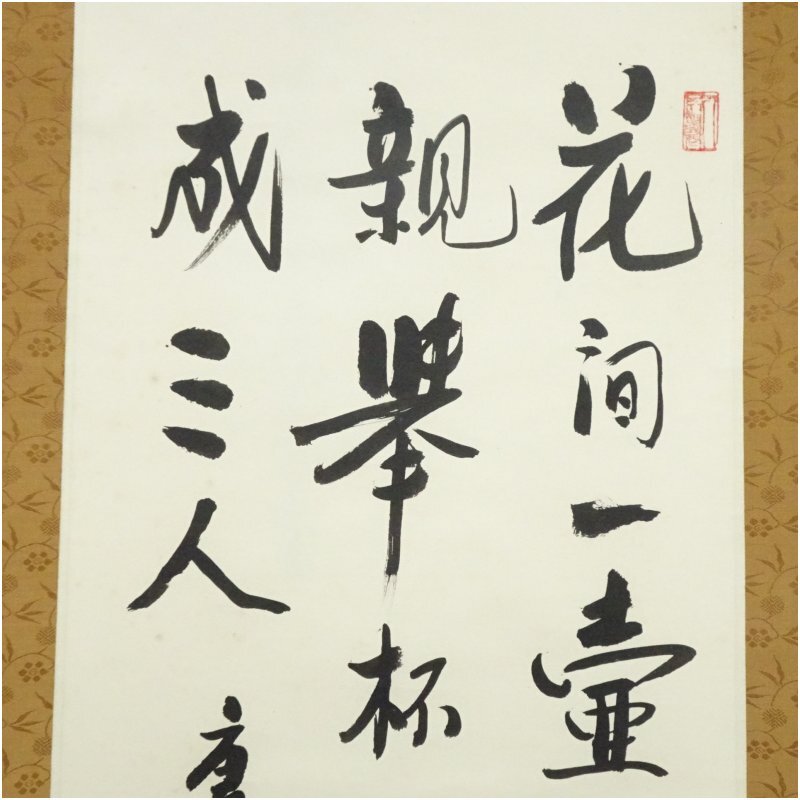 花间一壷
親舉杯
成三人